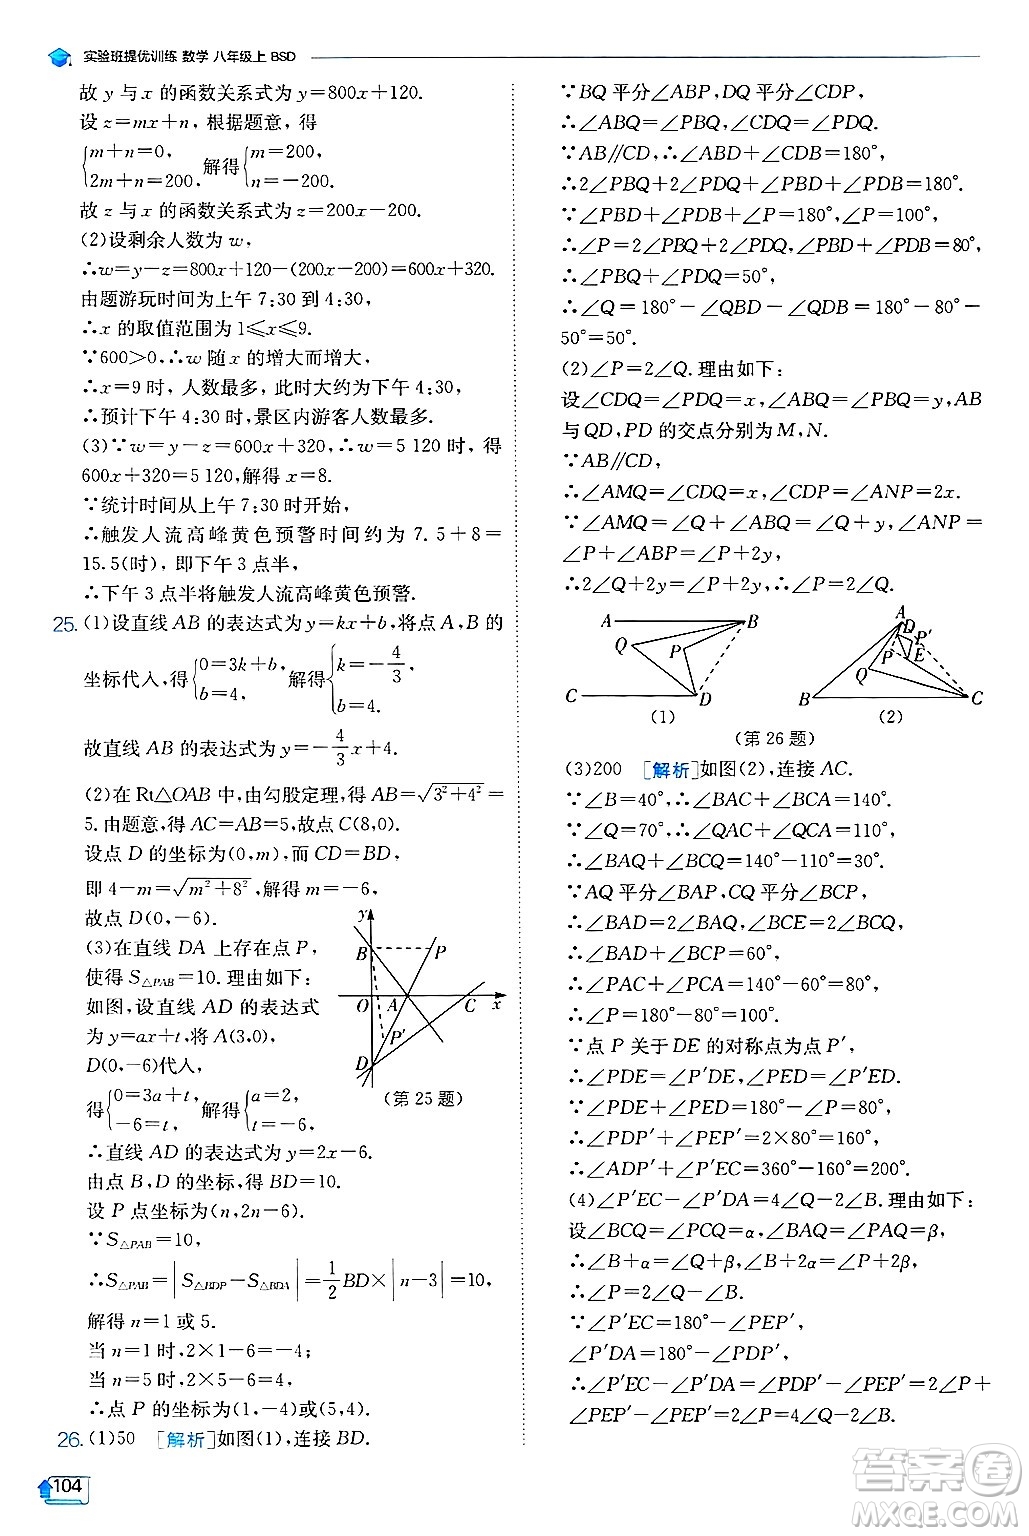 实验班提优训练 数学 八年级上 BSD
故 y 与 x 的函数关系式为 y=800x+120.
设 z=mx+n,根据题意,得
{m+n=0, 2m+n=200. 解得{m=200, n=-200.
故 z 与 x 的函数关系式为 z=200x-200.
(2)设剩余人数为 w,
∴w=y-z=800x+120-(200x-200)=600x+320.
由题游玩时间为上午 7:30 到 4:30,
∴x 的取值范围为 1≤x≤9.
∵600>0,∴w 随 x 的增大而增大,
∴x=9 时,人数最多,此时大约为下午 4:30,
∴预计下午 4:30 时,景区内游客人数最多.
(3)∵w=y-z=600x+320,∴w=5 120 时,得
600x+320=5 120,解得 x=8.
∵统计时间从上午 7:30 时开始,
∴触发人流高峰黄色预警时间约为 7.5+8=
15.5(时),即下午 3 点半,
∴下午 3 点半将触发人流高峰黄色预警.
25.(1)设直线 AB 的表达式为 y=kx+b,将点 A,B 的
坐标代入,得{0=3k+b, b=4, 解得{k=-4/3, b=4.
故直线 AB 的表达式为 y=-4/3x+4.
(2)在 Rt△OAB 中,由勾股定理,得 AB=√(3²+4²)=
5.由题意,得 AC=AB=5,故点 C(8,0).
设点 D 的坐标为(0,m),而 CD=BD,
即 4-m=√(m²+8²),解得 m=-6.
故点 D(0,-6).
(3)在直线 DA 上存在点 P,
使得 S△PAB=10.理由如下:
如图,设直线 AD 的表达式
为 y=ax+t,将 A(3,0),
D(0,-6)代入,
得{0=3a+t, -6=t, 解得{a=2, t=-6,
y
B
P
O
A
C
x
P′
D
(第 25 题)
∴直线 AD 的表达式为 y=2x-6.
由点 B,D 的坐标,得 BD=10.
设 P 点坐标为(n,2n-6).
∵S△PAB=10,
∴S△PAB=|S△BDP-S△BDA|=1/2BD×|n-3|=10,
解得 n=1 或 5.
当 n=1 时,2×1-6=-4;
当 n=5 时,2×5-6=4,
∴点 P 的坐标为(1,-4)或(5,4).
26.(1)50 [解析]如图(1),连接 BD.
104
∵BQ 平分∠ABP,DQ 平分∠CDP,
∴∠ABQ=∠PBQ,∠CDQ=∠PDQ.
∵AB∥CD,∴∠ABD+∠CDB=180°,
∴2∠PBQ+2∠PDQ+∠PBD+∠PDB=180°.
∵∠PBD+∠PDB+∠P=180°,∠P=100°,
∴∠P=2∠PBQ+2∠PDQ,∠PBD+∠PDB=80°,
∴∠PBQ+∠PDQ=50°,
∴∠Q=180°-∠QBD-∠QDB=180°-80°-
50°=50°.
(2)∠P=2∠Q.理由如下:
设∠CDQ=∠PDQ=x,∠ABQ=∠PBQ=y,AB
与 QD,PD 的交点分别为 M,N.
∵AB∥CD,
∴∠AMQ=∠CDQ=x,∠CDP=∠ANP=2x.
∵∠AMQ=∠Q+∠ABQ=∠Q+y,∠ANP=
∠P+∠ABP=∠P+2y,
∴2∠Q+2y=∠P+2y,∴∠P=2∠Q.
A
B
Q
P
C
D
(1)
A
D
P′
P
E
Q
B
C
(2)
(第 26 题)
(3)200 [解析]如图(2),连接 AC.
∵∠B=40°,∴∠BAC+∠BCA=140°.
∵∠Q=70°,∴∠QAC+∠QCA=110°,
∴∠BAQ+∠BCQ=140°-110°=30°.
∵AQ 平分∠BAP,CQ 平分∠BCP,
∴∠BAD=2∠BAQ,∠BCE=2∠BCQ,
∴∠BAD+∠BCP=60°,
∴∠PAC+∠PCA=140°-60°=80°,
∴∠P=180°-80°=100°.
∵点 P 关于 DE 的对称点为点 P′,
∴∠PDE=∠P′DE,∠PED=∠P′ED.
∵∠PDE+∠PED=180°-∠P=80°,
∴∠PDP′+∠PEP′=2×80°=160°,
∴∠ADP′+∠P′EC=360°-160°=200°.
(4)∠P′EC-∠P′DA=4∠Q-2∠B.理由如下:
设∠BCQ=∠PCQ=α,∠BAQ=∠PAQ=β,
∴∠B+α=∠Q+β,∠Q+α=∠P+β,
∴∠P=2∠Q-∠B.
∵∠P′EC=180°-∠PEP′,
∠P′DA=180°-∠PDP′,
∴∠P′EC-∠P′DA=∠PDP′-∠PEP′=2∠P=
4∠Q-2∠B.
答案圈
MXQE.COM